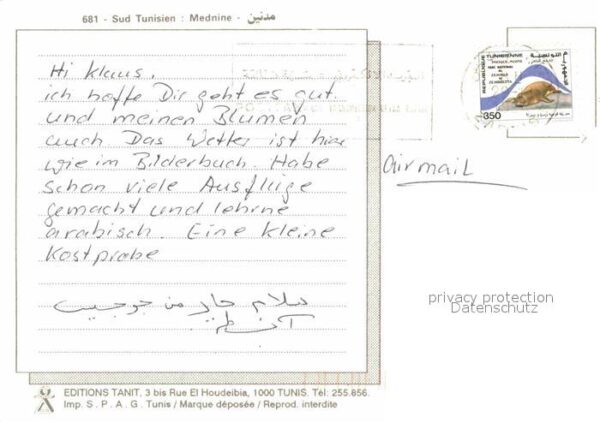 681 - Sud Tunisien : Mednine - مدنين
Hi Klaus.
ich hoffe Dir geht es gut
und meinen Blumen
auch. Das Wetter ist hier
wie im Bilderbuch. Habe
schon viele Ausflüge
gemacht und lehrne
arabisch. Eine kleine
Kostprobe
سلام حار من
airmail
REPUBLIQUE TUNISIENNE
350
privacy protection
Datenschutz
EDITIONS TANIT, 3 bis Rue El Houdeibia, 1000 TUNIS. Tél: 255.856.
Imp. S. P. A. G. Tunis / Marque déposée / Reprod. interdite